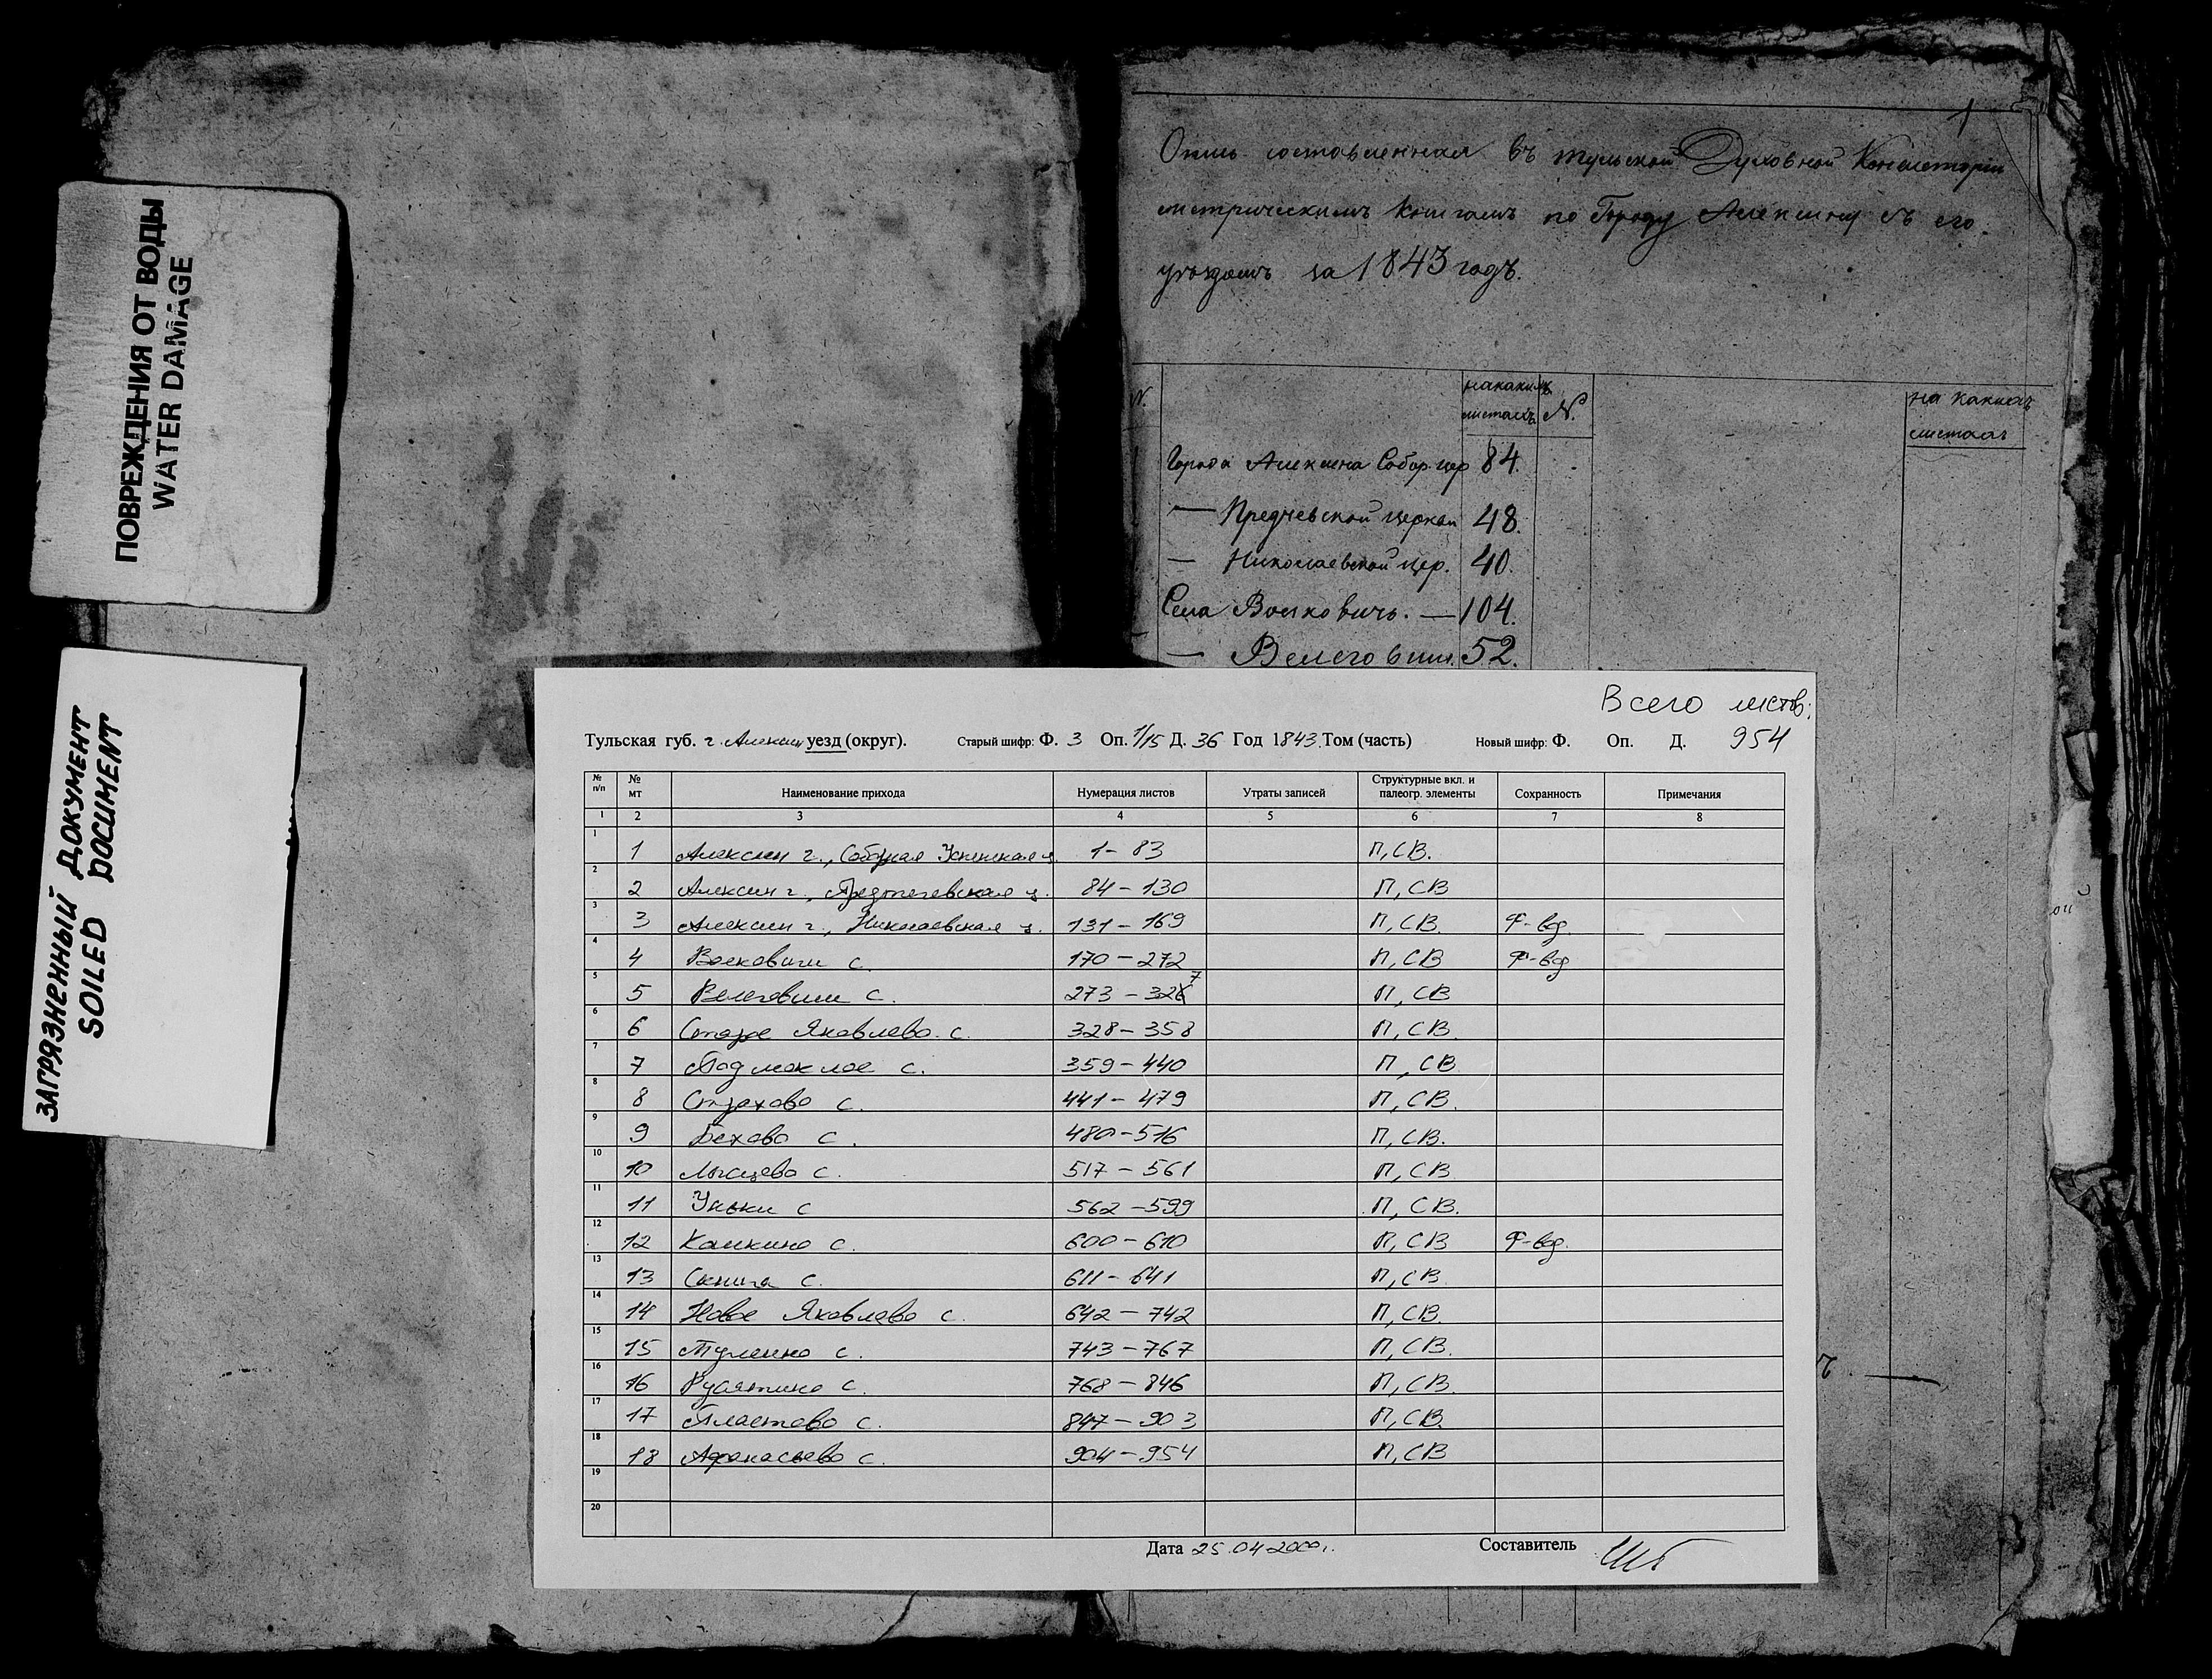 ПОВРЕЖДЕНИЯ ОТ ВОДЫ
WATER DAMAGE
ЗАГРЯЗНЕННЫЙ ДОКУМЕНТ
SOILED DOCUMENT
1
Опись составленная въ тульской Духовной Консисторіи
метрическимъ книгамъ по Городу Алексину съ его
уѣздомъ за 1843 годъ.
№. на какихъ листахъ №. на какихъ листахъ
Города Алексина Собор. цер 84.
— Предчевской церкви 48.
— Николаевской цер. 40.
Села Волковичь. — 104.
— Велеговищ. 52.
Всего листов:
954
Тульская губ. г. Алексин уезд (округ). Старый шифр: Ф. 3 Оп. 1/15 Д. 36 Год 1843. Том (часть) Новый шифр: Ф. Оп. Д.
№ п/п № мт Наименование прихода Нумерация листов Утраты записей Структурные вкл. и палеогр. элементы Сохранность Примечания
1 2 3 4 5 6 7 8
1 1 Алексин г., Соборная Успенская ц. 1-83 П, СВ.
2 2 Алексин г., Предтечевская ц. 84-130 П, СВ
3 3 Алексин г., Николаевская ц. 131-169 П, СВ. Ф-вд.
4 4 Волковичи с. 170-272 П, СВ Ф-вд
5 5 Велеговищи с. 273-327 П, СВ
6 6 Старое Яковлево с. 328-358 П, СВ.
7 7 Подмоклое с. 359-440 П, СВ
8 8 Страхово с. 441-479 П, СВ.
9 9 Бехово с. 480-516 П, СВ.
10 10 Лысцево с. 517-561 П, СВ
11 11 Уньки с 562-599 П, СВ.
12 12 Кошкино с. 600-610 П, СВ Ф-вд.
13 13 Скнига с. 611-641 П, СВ.
14 14 Новое Яковлево с. 642-742 П, СВ.
15 15 Тулеино с. 743-767 П, СВ.
16 16 Русятино с. 768-846 П, СВ.
17 17 Пластово с. 847-903 П, СВ.
18 18 Афанасьево с. 904-954 П, СВ
19
20
Дата 25.04.2000г. Составитель